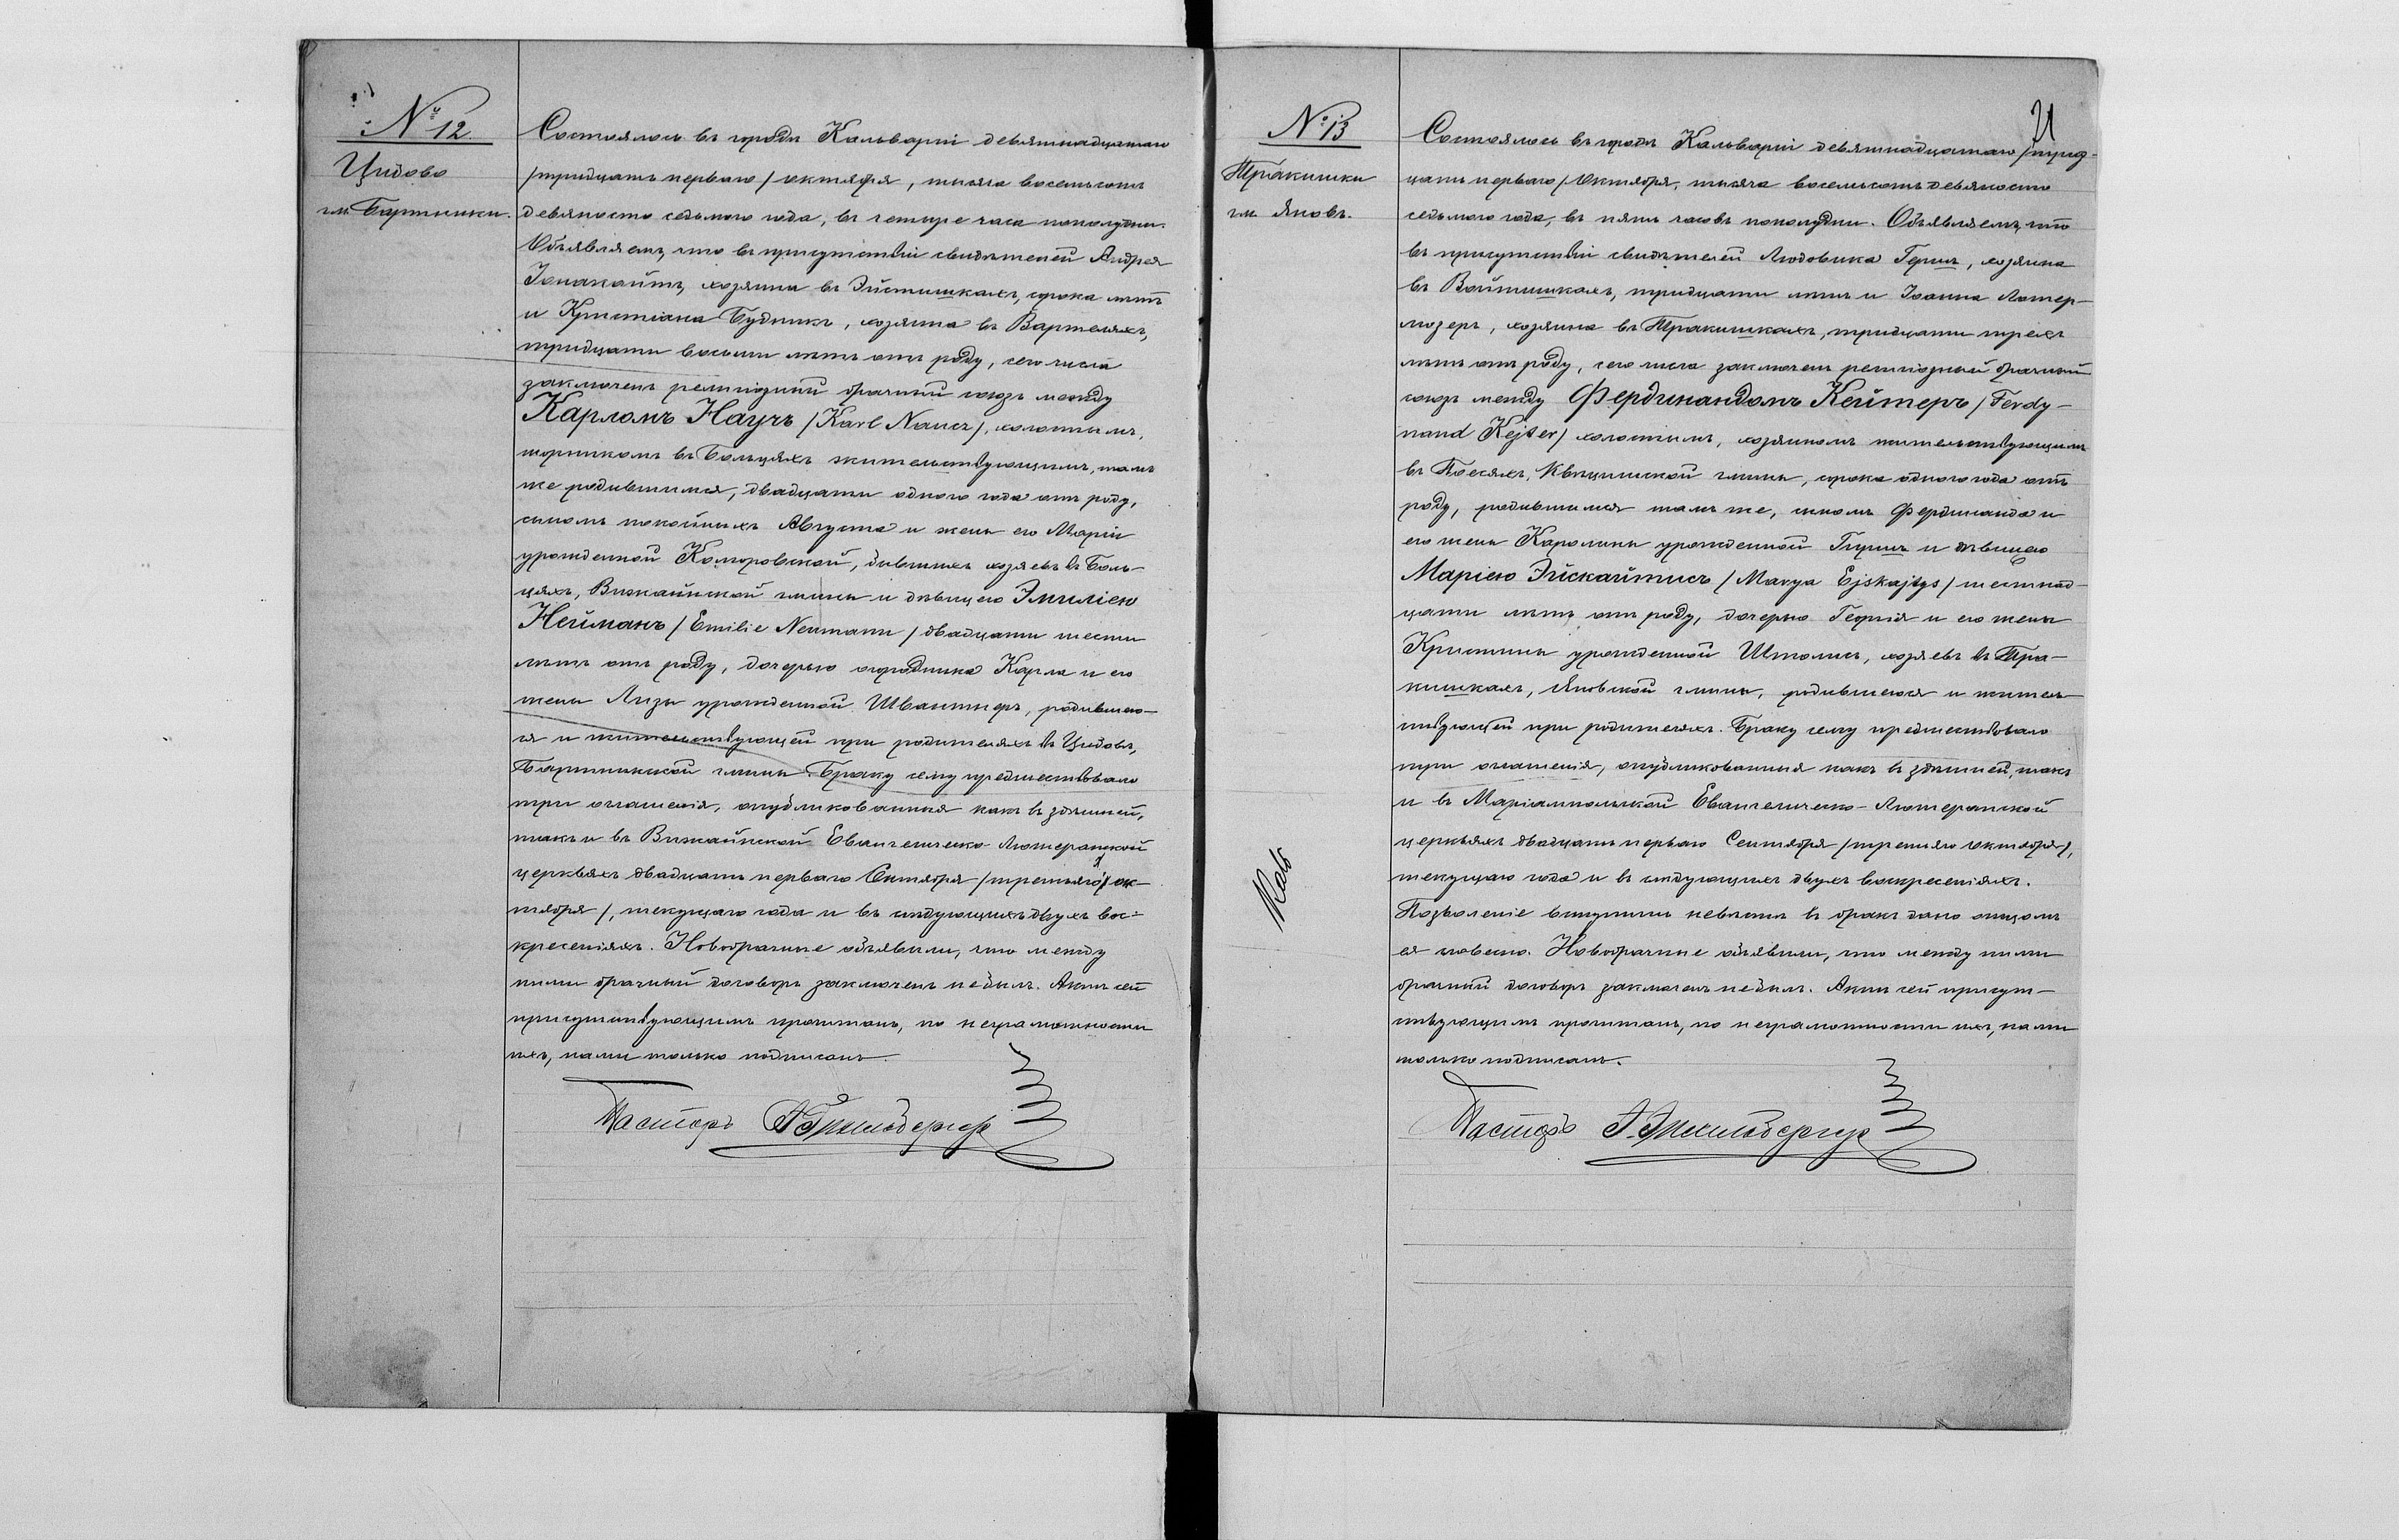 № 12.
Цидово
гм. Бартники.
Состоялось въ городѣ Кальваріи девятнадцатаго
/тридцать перваго/ октября, тысяча восемьсотъ
девяносто седьмого года, въ четыре часа пополудни.
Объявляемъ, что въ присутствіи свидѣтелей Андрея
Іонакайтъ, хозяина въ Эйстишкахъ, сорока лѣтъ
и Христіана Будникъ, хозяина въ Вартеляхъ,
тридцати восьми лѣтъ отъ роду, сего числа
заключенъ религіозный брачный союзъ между
Карломъ Науръ /Karl Nauer/, холостымъ,
въ Больцяхъ жительствующимъ, тамъ
же родившимся, двадцати одного года отъ роду,
сыномъ покойныхъ Августа и жены его Маріи
урожденной Коморовской, бывшихъ хозяевъ въ Боль-
цяхъ, Вижайнской гмины и дѣвицею Эмиліею
Нейманъ /Emilie Neumann/ двадцати шести
лѣтъ отъ роду, дочерью огородника Карла и его
жены Лизы урожденной Швантнеръ, родившею-
ся и жительствующей при родителяхъ въ Цидовѣ,
Бартникской гмины. Браку сему предшествовало
три оглашенія, опубликованныя какъ въ здѣшней,
такъ и въ Вижайнской Евангелическо-Лютеранской
церквяхъ двадцать перваго Сентября /третьяго ок-
тября/, текущаго года и въ слѣдующихъ двухъ вос-
кресеніяхъ. Новобрачные объявили, что между
ними брачный договоръ заключенъ не былъ. Актъ сей
присутствующимъ прочитанъ, по неграмотности
ихъ, нами только подписанъ.
Пасторъ
№ 13
Тракишки
гм. Яновъ.
21
Состоялось въ городѣ Кальваріи девятнадцатаго /трид-
цать перваго/ Октября, тысяча восемьсотъ девяносто
седьмого года, въ пять часовъ пополудни. Объявляемъ, что
въ присутствіи свидѣтелей Людовика Геришъ, хозяина
въ Войтишкахъ, тридцати лѣтъ и Іоанна Лотер-
мозеръ, хозяина въ Тракишкахъ, тридцати трехъ
лѣтъ отъ роду, сего числа заключенъ религіозный брачный
союзъ между Фердинандомъ Кейтеръ /Ferdy-
nand Kejter/ холостымъ, хозяиномъ жительствующимъ
въ Поесяхъ, Квѣцишской гмины, сорока одного года отъ
роду, родившимся тамъ же, сыномъ Фердинанда и
его жены Каролины урожденной Гиршъ и дѣвицею
Маріею Эйскайтисъ /Marya Ejskajtys/ шестнад-
цати лѣтъ отъ роду, дочерью Георгія и его жены
Христины урожденной Штолисъ, хозяевъ въ Тра-
кишкахъ, Яновской гмины, родившеюся и житель-
ствующей при родителяхъ. Браку сему предшествовало
три оглашенія, опубликованныя какъ въ здѣшней, такъ
и въ Маріампольской Евангелическо-Лютеранской
церквяхъ двадцать перваго Сентября /третьяго октября/,
текущаго года и въ слѣдующихъ двухъ воскресеніяхъ.
Позволеніе вступить невѣстѣ въ бракъ дано отцомъ
ея словесно. Новобрачные объявили, что между ними
брачный договоръ заключенъ не былъ. Актъ сей присут-
ствующимъ прочитанъ, по неграмотности ихъ, нами
только подписанъ.
Пасторъ